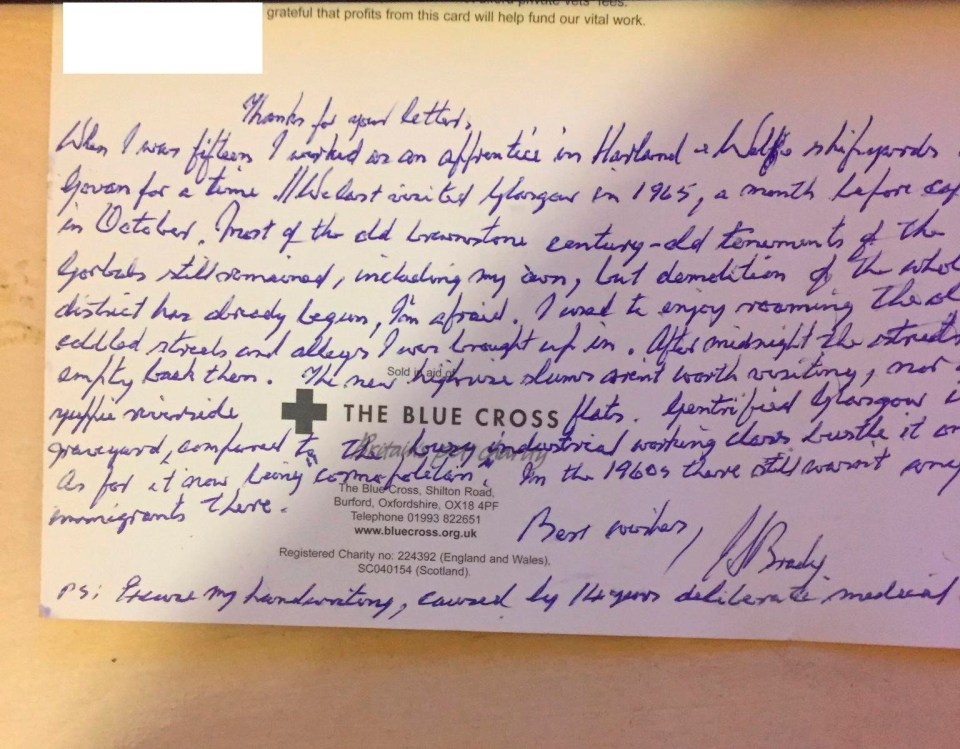 grateful that profits from this card will help fund our vital work.
Thanks for your letter.
When I was fifteen I worked as an apprentice in Harland & Wolfe shipyards
Govan for a time. We last visited Glasgow in 1965, a month before
in October. Most of the old brownstone century-old tenements of the
Gorbals still remained, including my own, but demolition of the
district has already begun, I'm afraid. I used to enjoy roaming the
cobbled streets and alleys I was brought up in. After midnight the streets
empty back then. The new highrise slums arent worth visiting, nor
Sold in aid of
yuppie riverside flats. Gentrified Glasgow
THE BLUE CROSS
Britain's pet charity
graveyard, compared to the busy, industrial working class bustle it
As for it now being "cosmopolitan". In the 1960s there still wasnt any
immigrants there.
The Blue Cross, Shilton Road,
Burford, Oxfordshire, OX18 4PF
Telephone 01993 822651
www.bluecross.org.uk
Best wishes,
Brady
Registered Charity no: 224392 (England and Wales),
SC040154 (Scotland).
PS: Excuse my handwriting, caused by 14 years deliberate medical